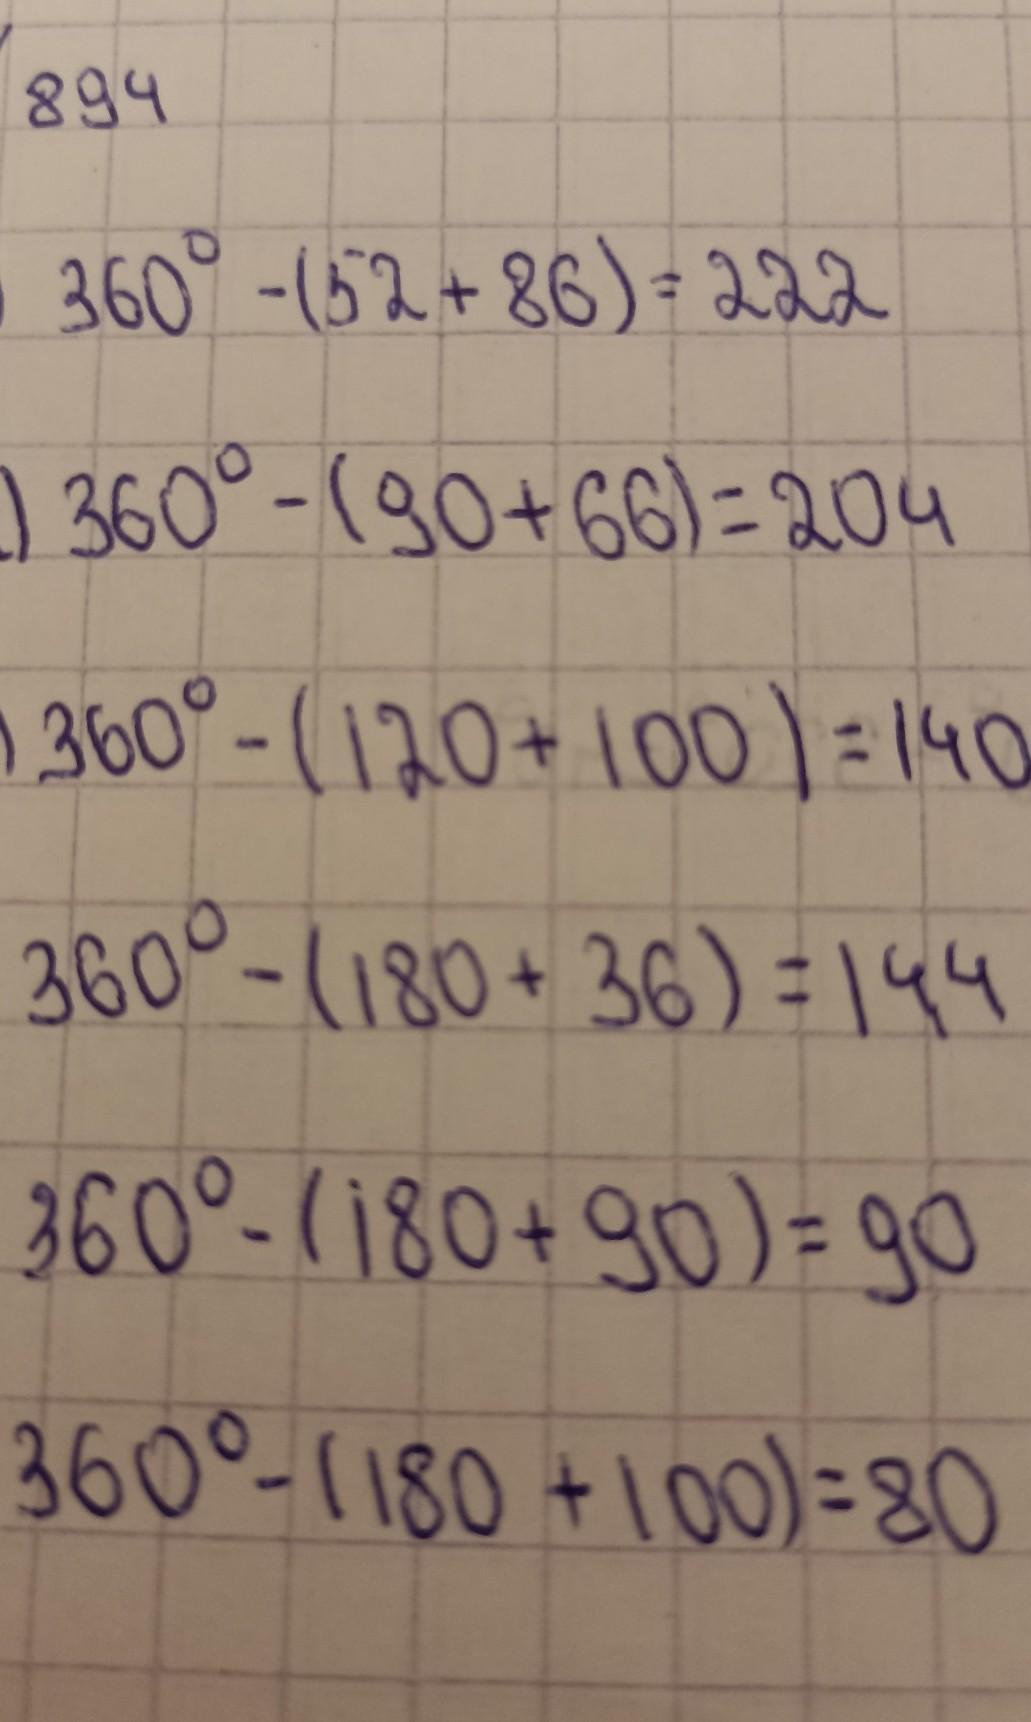 894
) 360° - (52 + 86) = 222
) 360° - (90 + 66) = 204
) 360° - (120 + 100) = 140
360° - (180 + 36) = 144
360° - (180 + 90) = 90
360° - (180 + 100) = 80